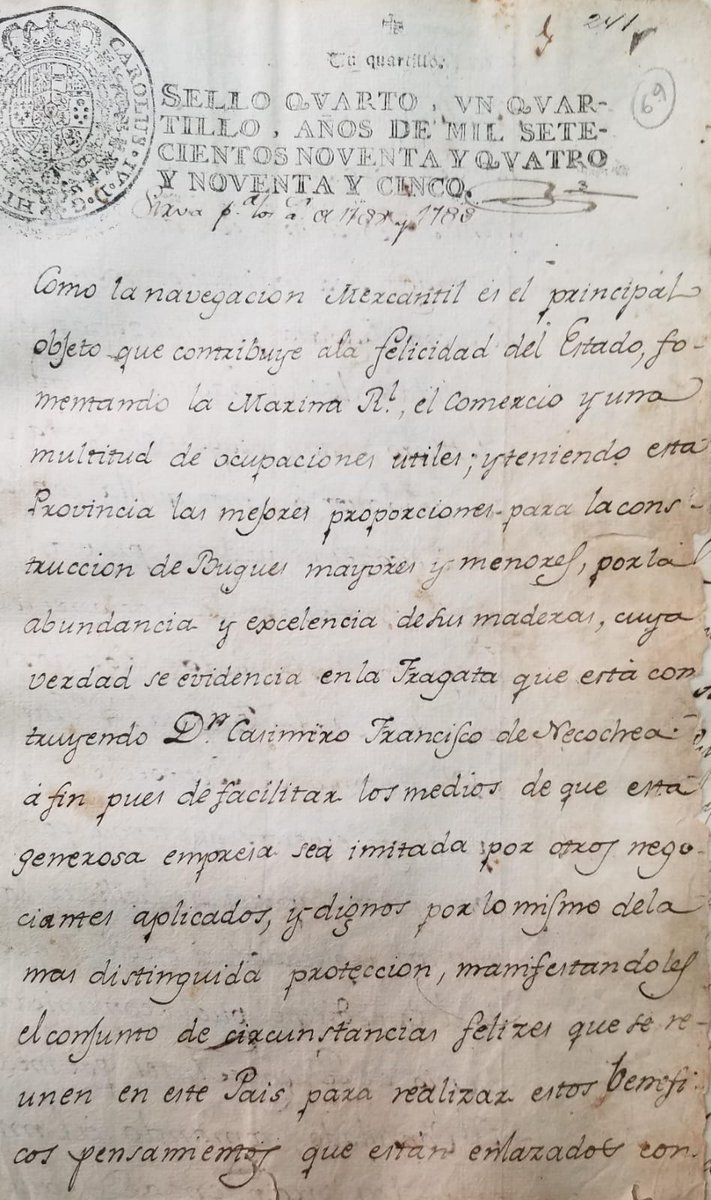 241
Un quartillo.
69
CAROLUS·IV·D·G·HI
SELLO QVARTO, VN QVAR-
TILLO, AÑOS DE MIL SETE-
CIENTOS NOVENTA Y QVATRO
Y NOVENTA Y CINCO.
Sirva p.ª los a.s de y 1788
Como la navegacion Mercantil es el principal
objeto que contribuye ala felicidad del Estado, fo-
mentando la Marina R.l, el Comercio y una
multitud de ocupaciones utiles; y teniendo esta
Provincia las mejores proporciones para la cons-
truccion de Buques mayores y menores, por la
abundancia y excelencia de sus maderas, cuya
verdad se evidencia en la Fragata que està con
truyendo D.n Casimiro Francisco de Necochea:
á fin pues de facilitar los medios de que esta
generosa empresa sea imitada por otros nego-
ciantes aplicados, y dignos por lo mismo dela
mas distinguida proteccion, manifestandoles
el conjunto de circunstancias felizes que se re-
unen en este Pais para realizar estos benefi-
cos pensamientos que estàn enlazados con